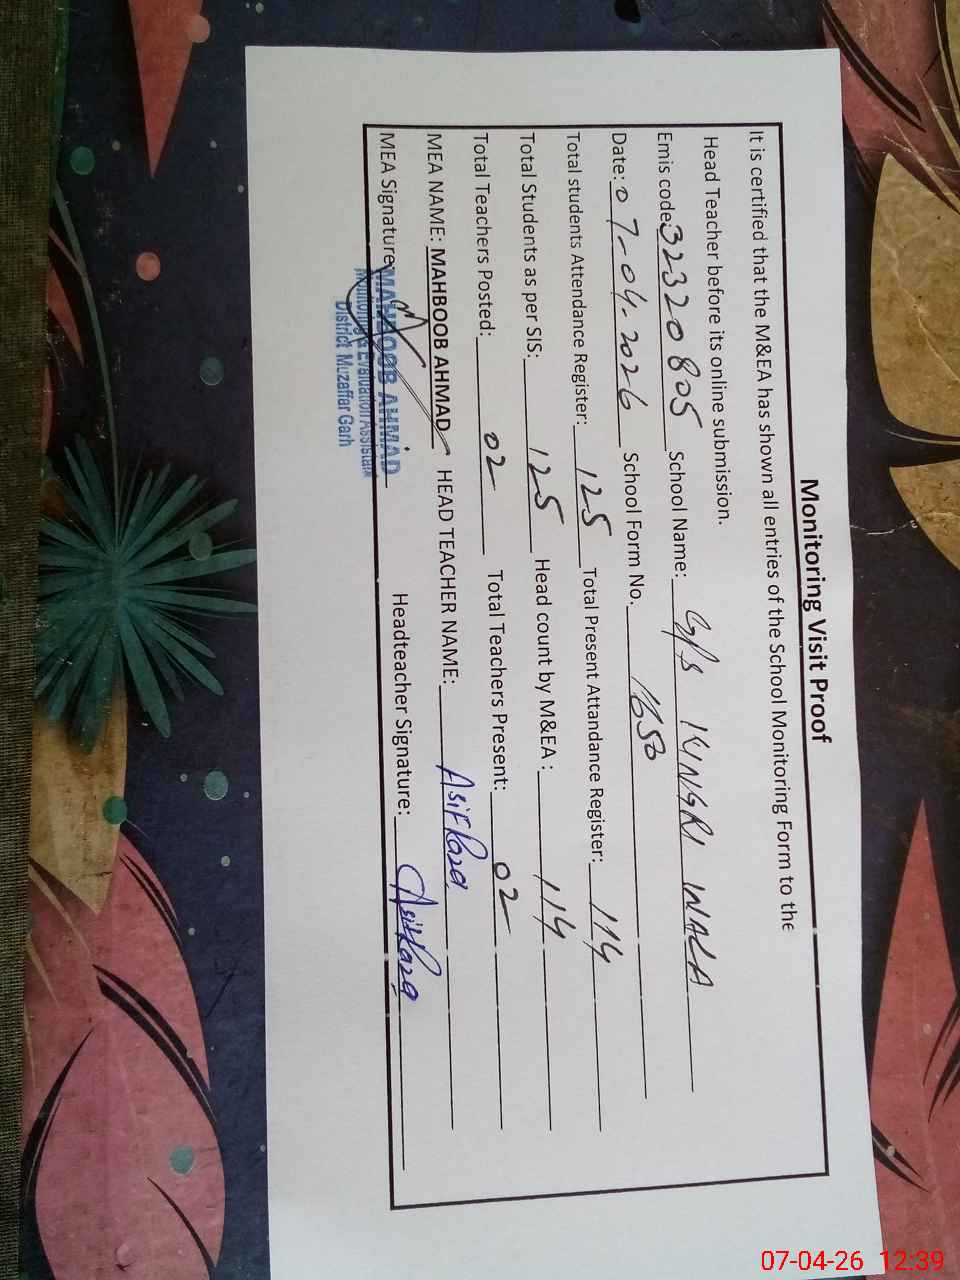 Monitoring Visit Proof
It is certified that the M&EA has shown all entries of the School Monitoring Form to the
Head Teacher before its online submission.
Emis code: 32320805 School Name: GPS KINGRI WALA
Date: 07-04-2026 School Form No. 1650
Total students Attendance Register: 125 Total Present Attandance Register: 114
Total Students as per SIS: 125 Head count by M&EA : 114
Total Teachers Posted: 02 Total Teachers Present: 02
MEA NAME: MAHBOOB AHMAD HEAD TEACHER NAME: Asif Raza
MEA Signature Headteacher Signature: Asif Raza
MAHBOOB AHMAD
Monitoring & Evaluation Assistant
District Muzaffar Garh
07-04-26 12:39